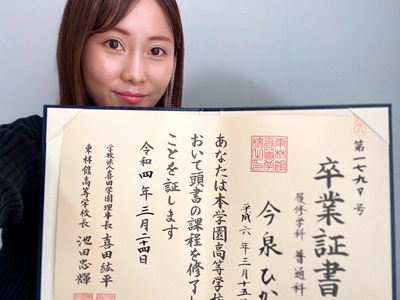 第一七九〇号
卒業証書
履修学科 普通科
今泉ひか
平成六年三月十五
あなたは本学園高等学校
おいて頭書の課程を修了し
ことを証します
令和四年三月二十四日
学校法人喜田学園理事長 喜田紘平
東林館高等学校長 池田忠輝